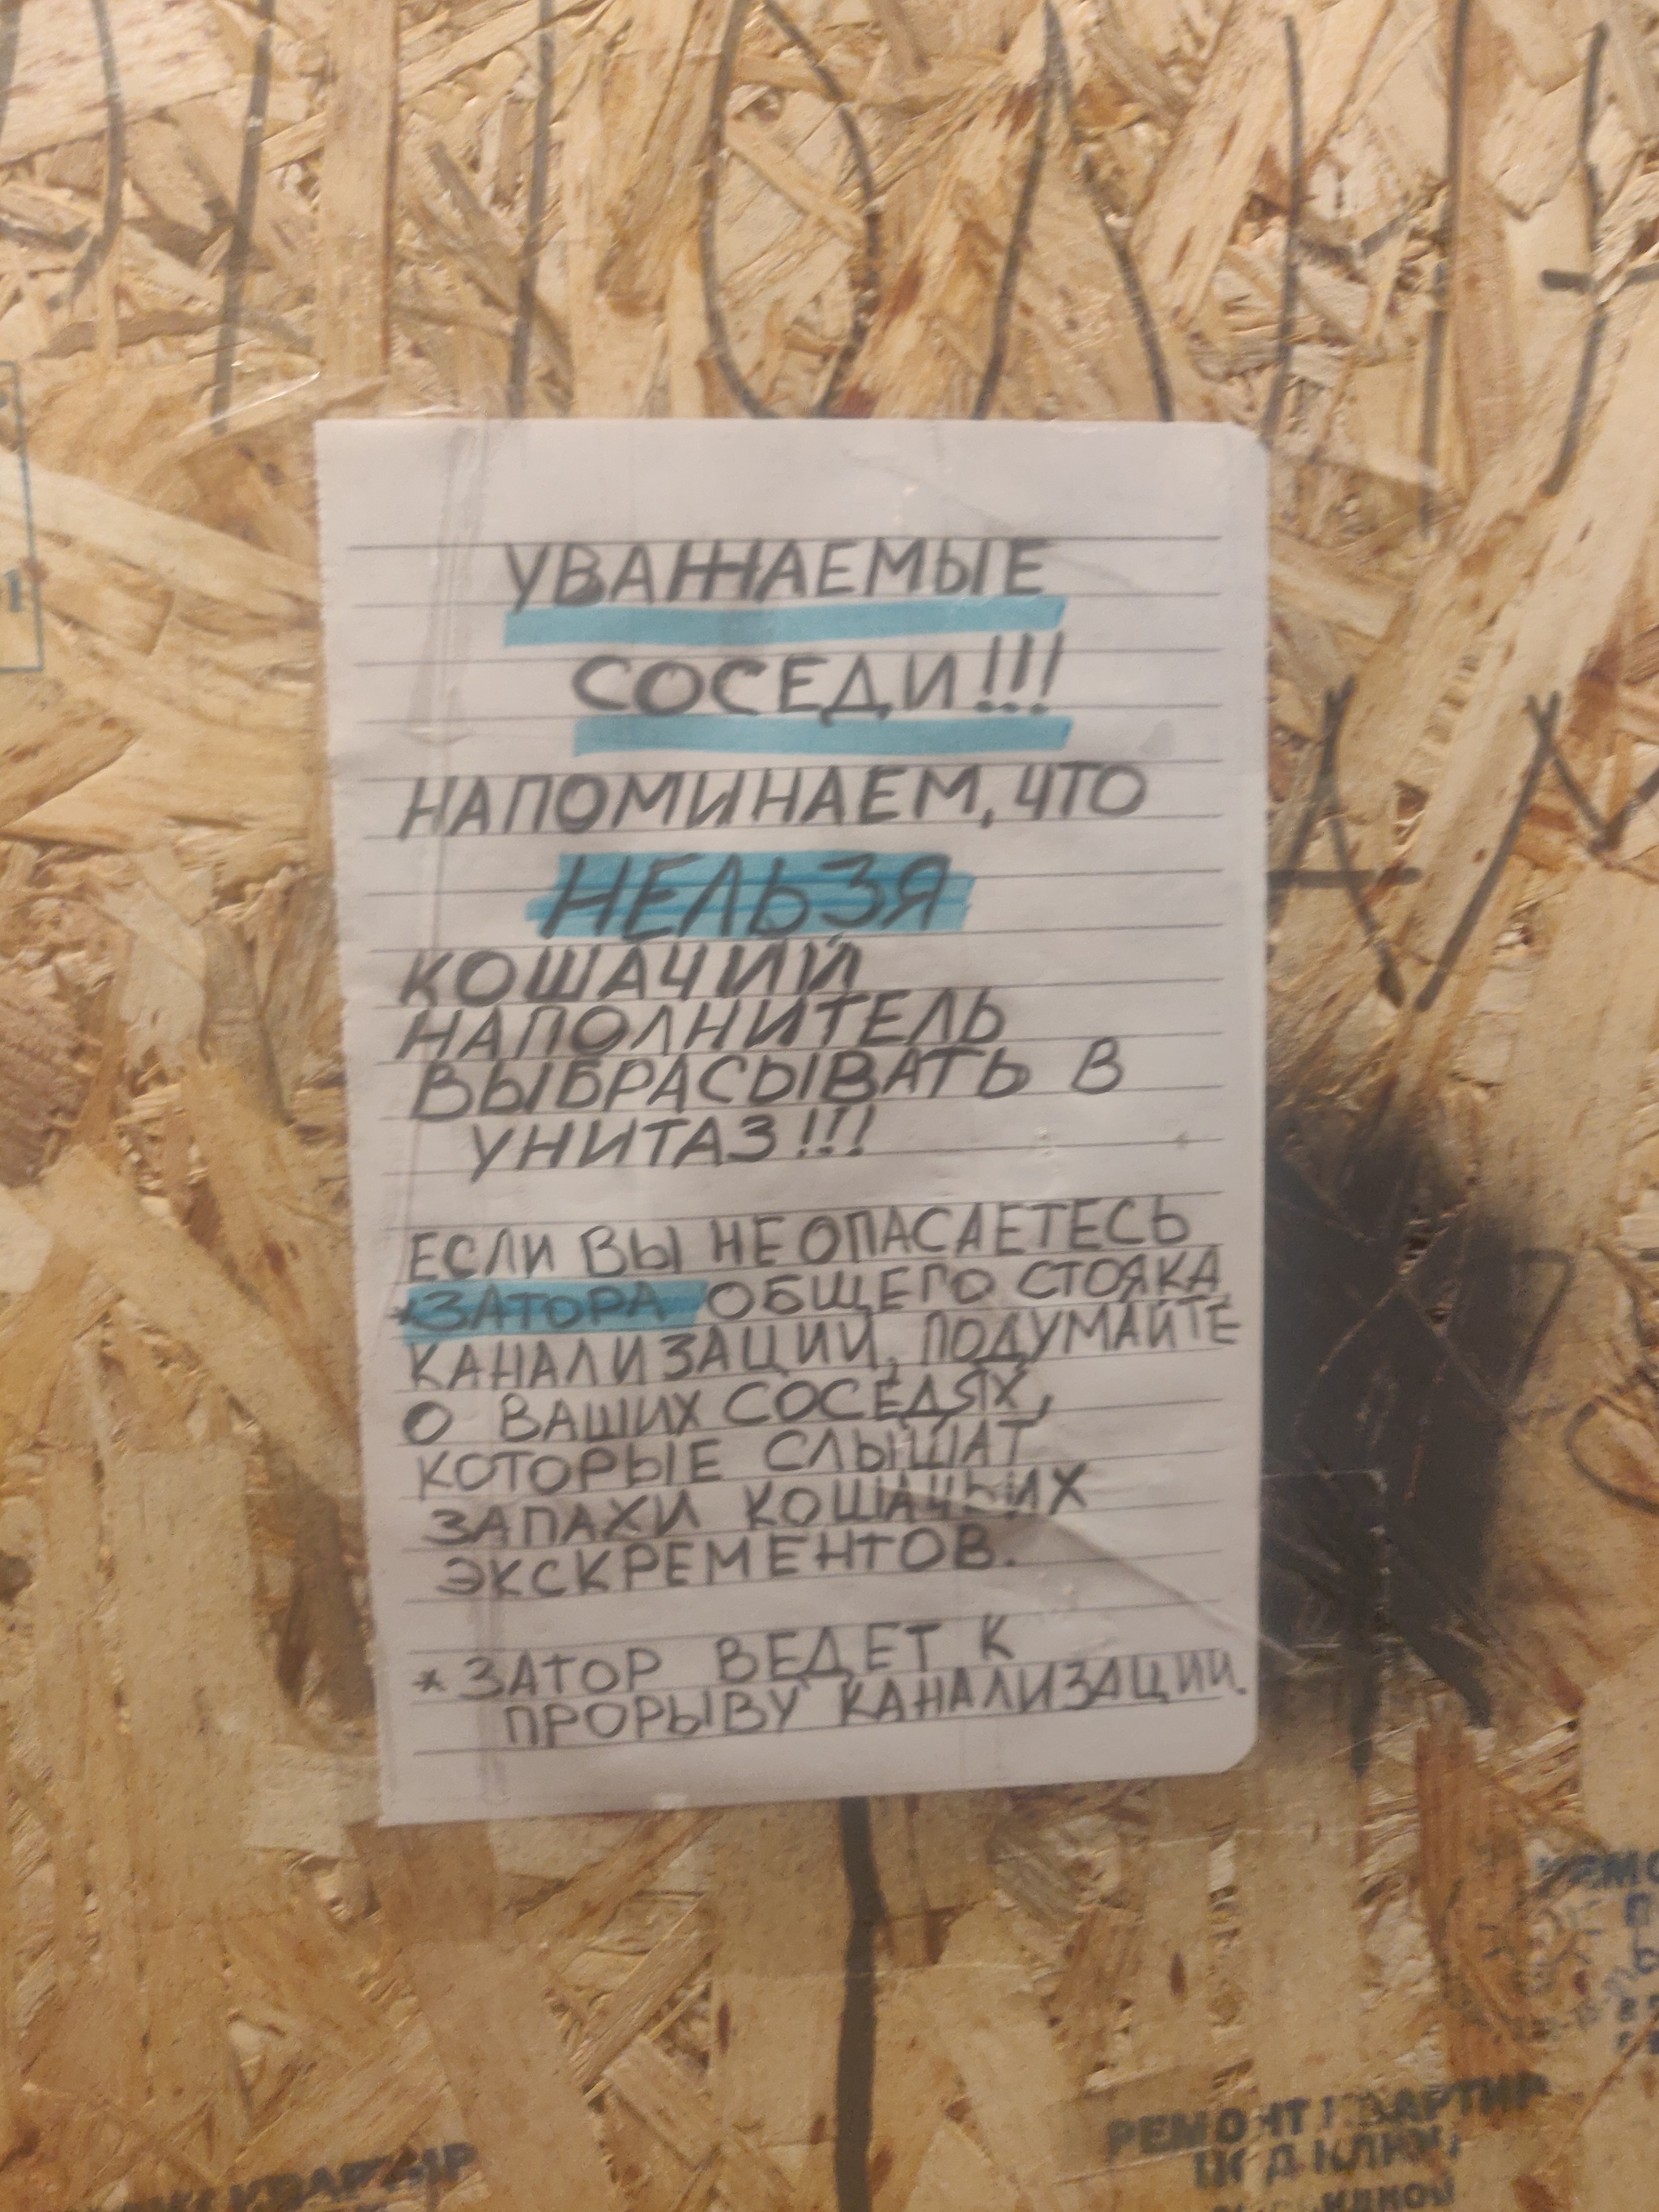 УВАЖАЕМЫЕ
СОСЕДИ!!!
НАПОМИНАЕМ, ЧТО
НЕЛЬЗЯ
КОШАЧИЙ
НАПОЛНИТЕЛЬ
ВЫБРАСЫВАТЬ В
УНИТАЗ!!!
ЕСЛИ ВЫ НЕ ОПАСАЕТЕСЬ
*ЗАТОРА ОБЩЕГО СТОЯКА
КАНАЛИЗАЦИИ, ПОДУМАЙТЕ
О ВАШИХ СОСЕДЯХ,
КОТОРЫЕ СЛЫШАТ
ЗАПАХИ КОШАЧЬИХ
ЭКСКРЕМЕНТОВ.
* ЗАТОР ВЕДЕТ К
ПРОРЫВУ КАНАЛИЗАЦИИ.
РЕМОНТ КВАРТИР
ПОД КЛЮЧ
КВАРТИР